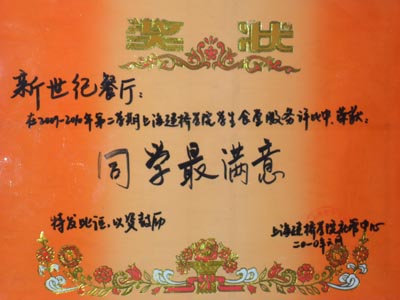 奖状
新世纪餐厅:
在2009-2010年第二学期上海建桥学院学生食堂服务评比中,荣获:
同学最满意
特发此证,以资鼓励
上海建桥学院教育中心
二〇一〇年六月